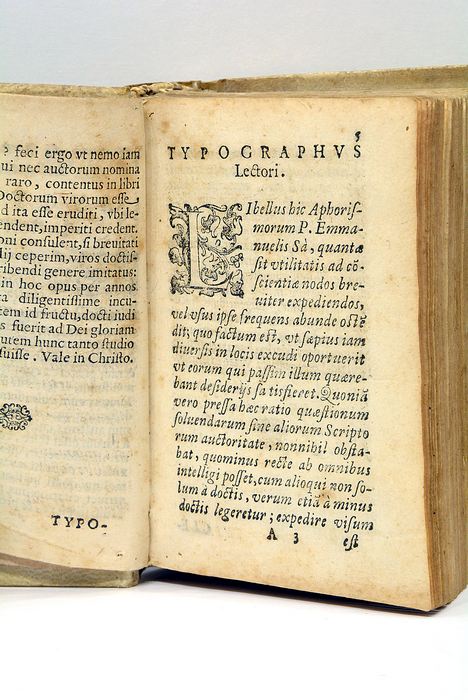 è feci ergo vt nemo iam
qui nec auctorum nomina
raro, contentus in libri
Doctorum virorum esse
d ita esse eruditi, vbi le-
endent, imperiti credent.
oni consulent, si breuitati
lij ceperim, viros doctis-
ribendi genere imitatus:
in hoc opus per annos
ra diligentissime incu-
tem id fructu, docti iudi
s fuerit ad Dei gloriam
utem hunc tanto studio
fuisse. Vale in Christo.
TYPO-
5
TYPOGRAPHVS
Lectori.
LIbellus hic Aphoris-
morum P. Emma-
nuelis Sà, quantæ
sit vtilitatis ad cō-
scientiæ nodos bre-
uiter expediendos,
vel vsus ipse frequens abunde ostē
dit; quo factum est, vt sæpius iam
diuersis in locis excudi oportuerit
vt eorum qui passim illum quære-
bant desiderijs satisfieret. Quoniā
vero pressa hæc ratio quæstionum
soluendarum sine aliorum Scripto
rum auctoritate, nonnihil obsta-
bat, quominus recte ab omnibus
intelligi posset, cum alioqui non so-
lum à doctis, verum etiā à minus
doctis legeretur; expedire visum
A 3
est